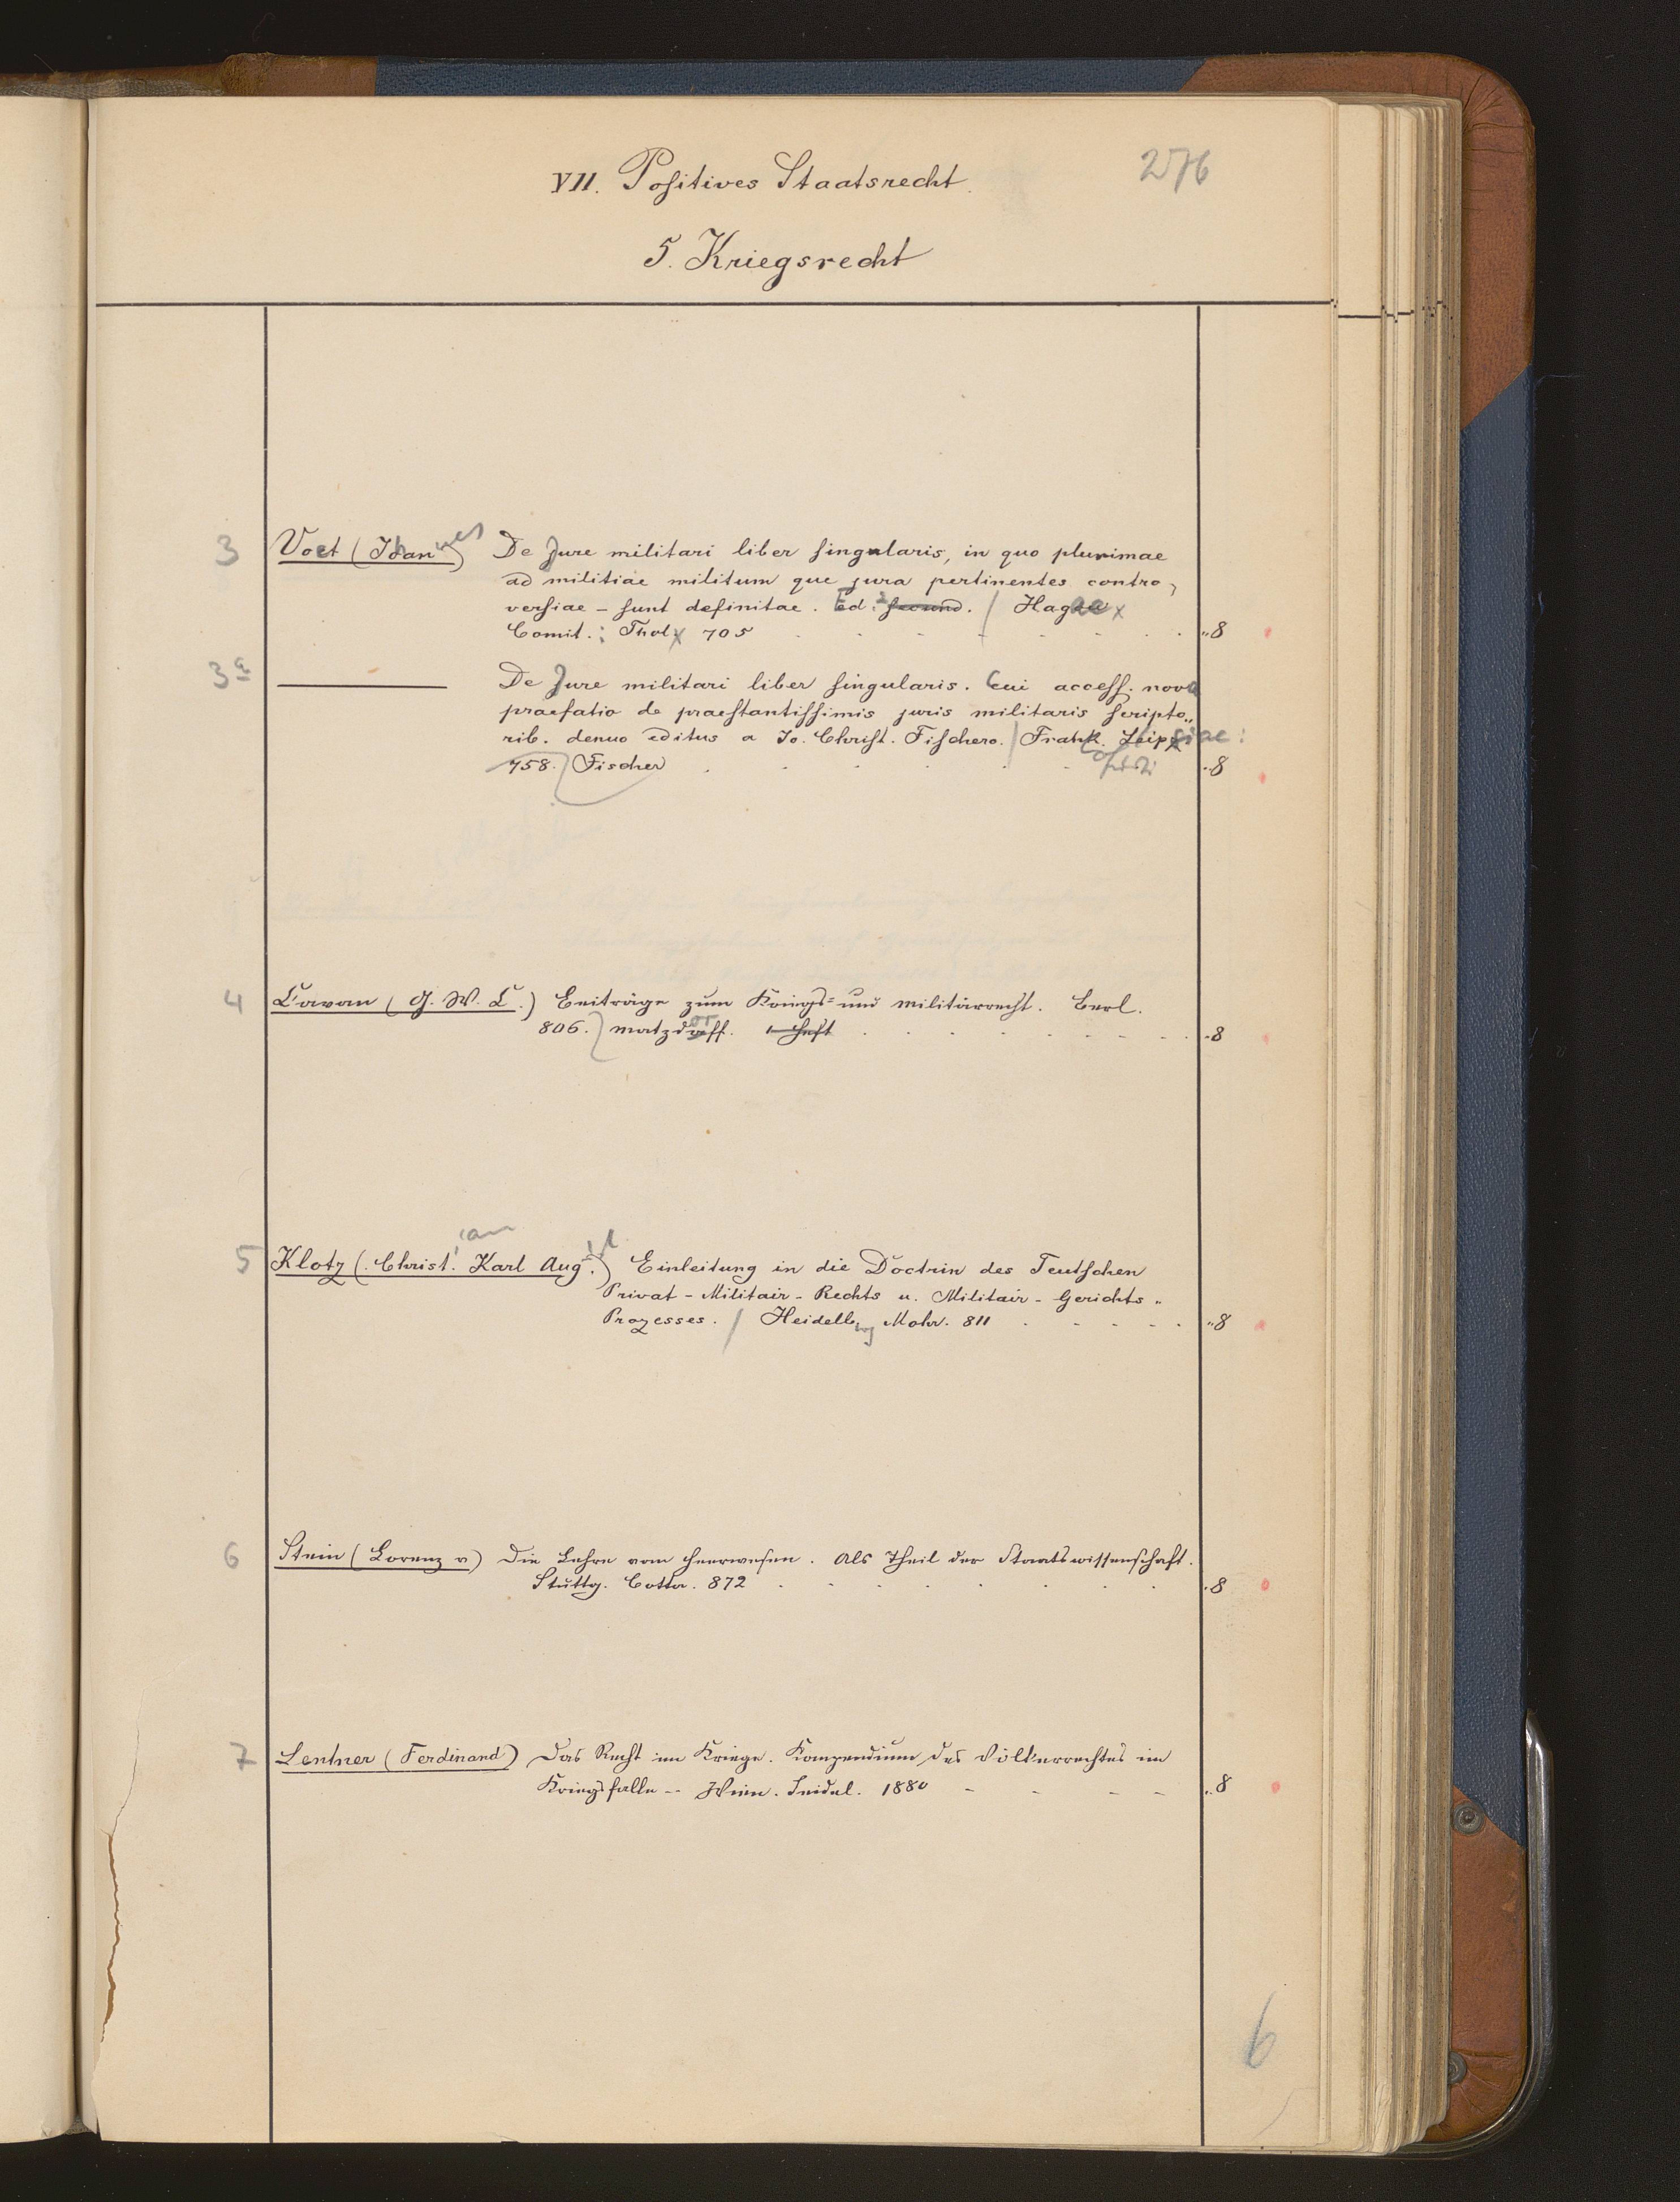 276
VII. Positives Staatsrecht.
5. Kriegsrecht
3 Voet (Johannes) De Jure militari liber singularis, in quo plurimae
ad militiae militum que jura pertinentes contro,
versiae – sunt definitae. Ed. 2 secund. / Hagae
Comit.: Thol 705 . . . . . . . „8
3a ——— De Jure militari liber singularis. Cui access. nova
praefatio de praestantissimis juris militaris scripto„
rib. denuo editus a Jo. Christ. Fischero. / Frank. Leipsiae:
758. Fischer . . . . . . -8
4 Cavan (J. W. C.) Beiträge zum Kriegs= und Militärrecht. Berl.
806. Matzdorff. 1 Heft . . . . . . . -8
5 Klotz (Christian Karl Aug.) Einleitung in die Doctrin des Teutschen
Privat - Militair - Rechts u. Militair - Gerichts„
Prozesses. / Heidelberg Mohr. 811 . . . . . „8
6 Stein (Lorenz v) Die Lehre vom Heerwesen. Als Theil der Staatswissenschaft.
Stuttg. Cotta. 872 . . . . . . . . .8
7 Lentner (Ferdinand) Das Recht im Kriege. Kompendium des Völkerrechtes im
Kriegsfalle -- Wien. Seidel. 1880 - - - - „8
6